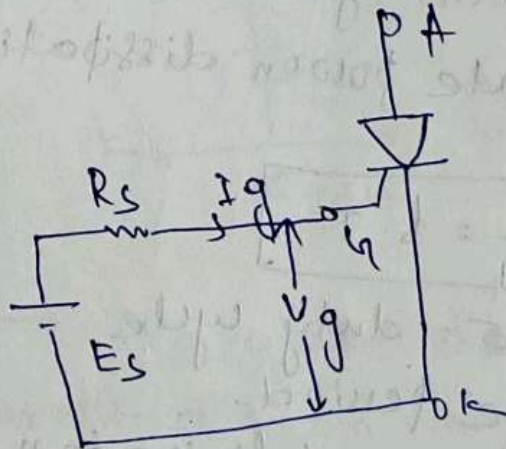 A
Rs
Ig
G
Vg
Es
K